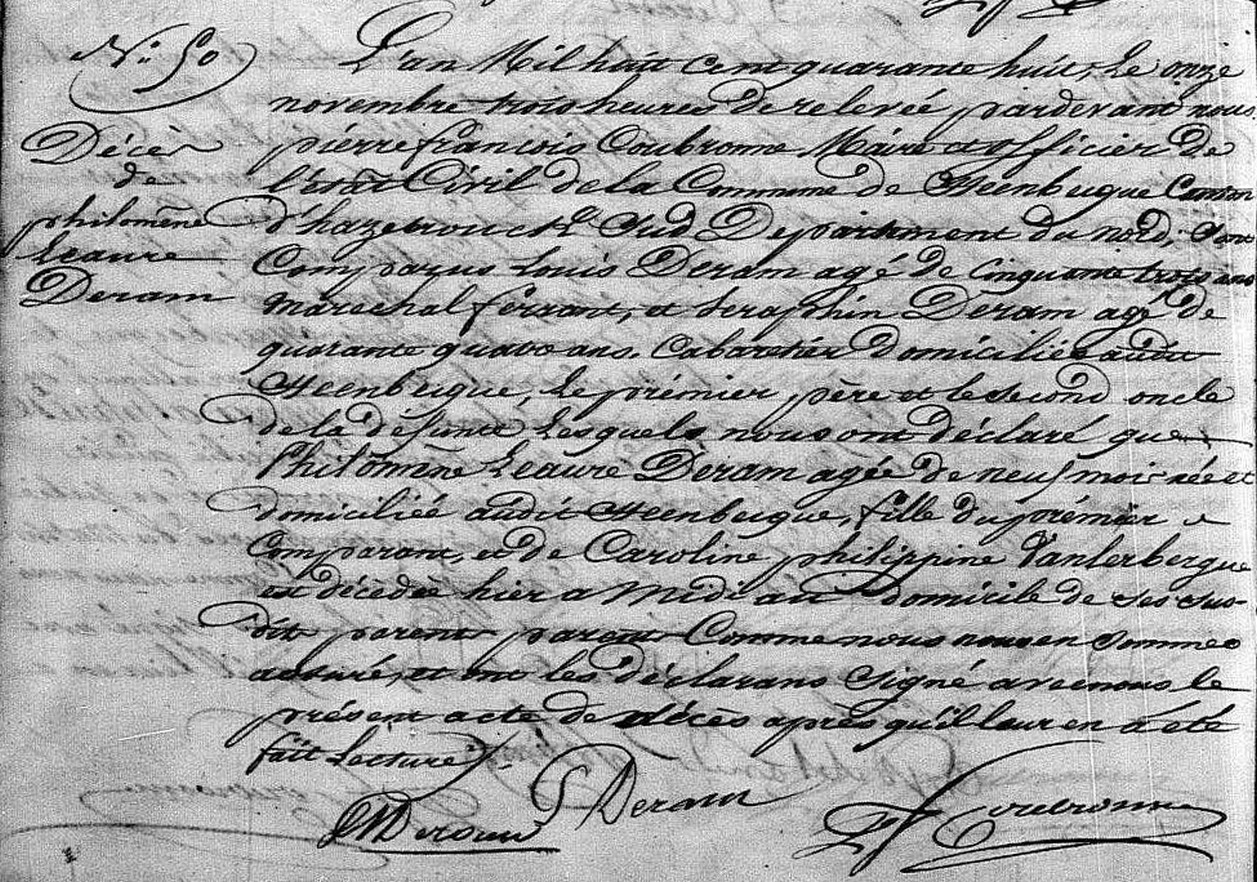 N.° 50
Décès
de
philomène
Leaure
Deram
L'an Mil huit cent quarante huit, le onze
novembre trois heures de relevée pardevant nous
pierre françois Coubronne Maire et officier de
l'état Civil de la Commune de Steenbecque Canton
d'hazebrouck Sud Département du nord, sont
Comparus Louis Deram agé de cinquante trois ans
marechal ferrant, et Seraphin Deram agé de
quarante quatre ans, Cabaretier domiciliés audit
Steenbecque, le prémier père et le second oncle
de la défunte Lesquels nous ont déclaré que
Philomène Leaure Deram agée de neuf mois née et
domiciliée audit Steenbecque, fille du prémier
Comparant, et de Caroline philippine Vanlerbergue
est décédée hier a Midi au domicile de ses sus-
dit parent parent Comme nous nous en sommes
assuré, et ont les déclarans Signé avec nous le
présent acte de décès après qu'il leur en a été
fait Lecture
Deram
S Deram
Pf Coubronne